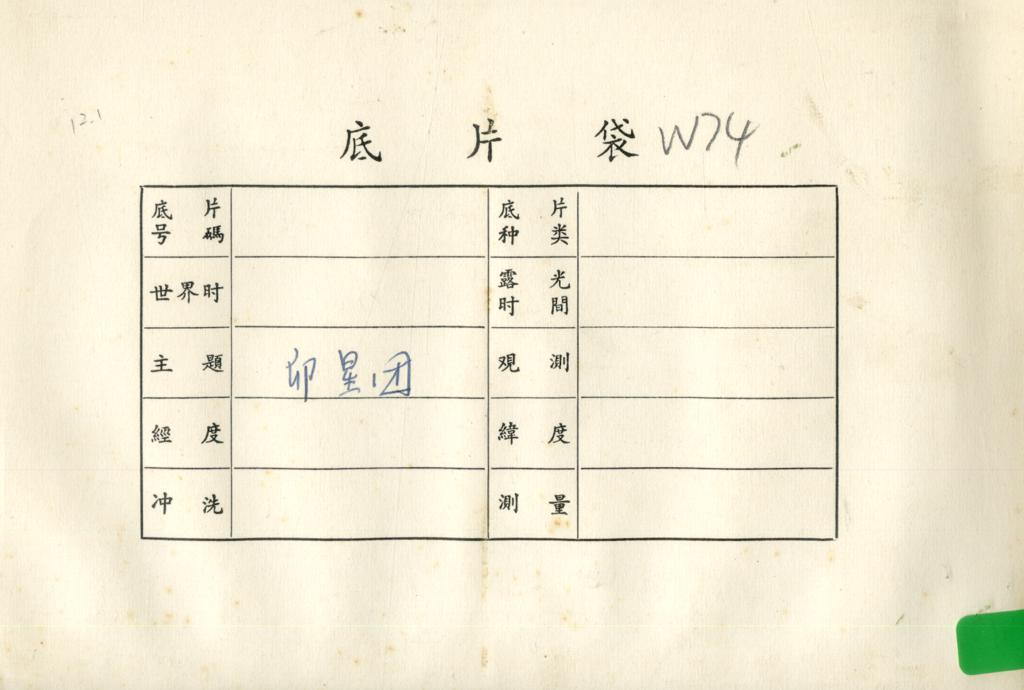 12.1
底片袋 W74
底片号碼 底片种类
世界时 露光时間
主題 昴星团 观測
經度 緯度
冲洗 測量